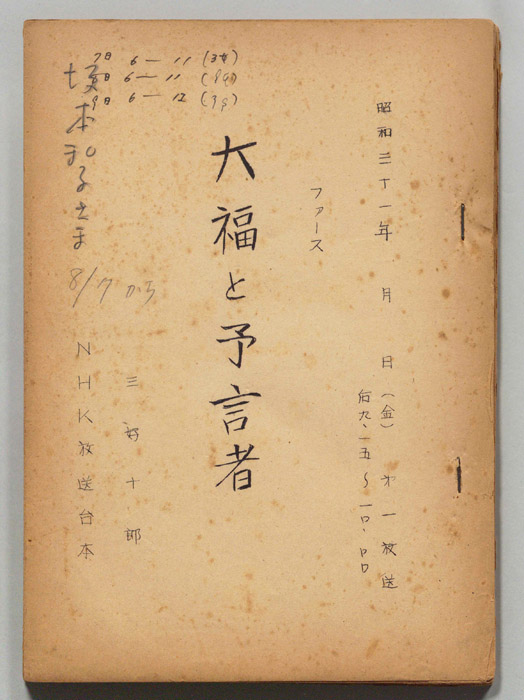 昭和三十一年　月　日（金）第一放送
后九、一五～一〇、〇〇
ファース
大福と予言者
三好十郎
NHK放送台本
7日 6－11
8日 6－11
9日 6－12
坂本和子さま
8/7から